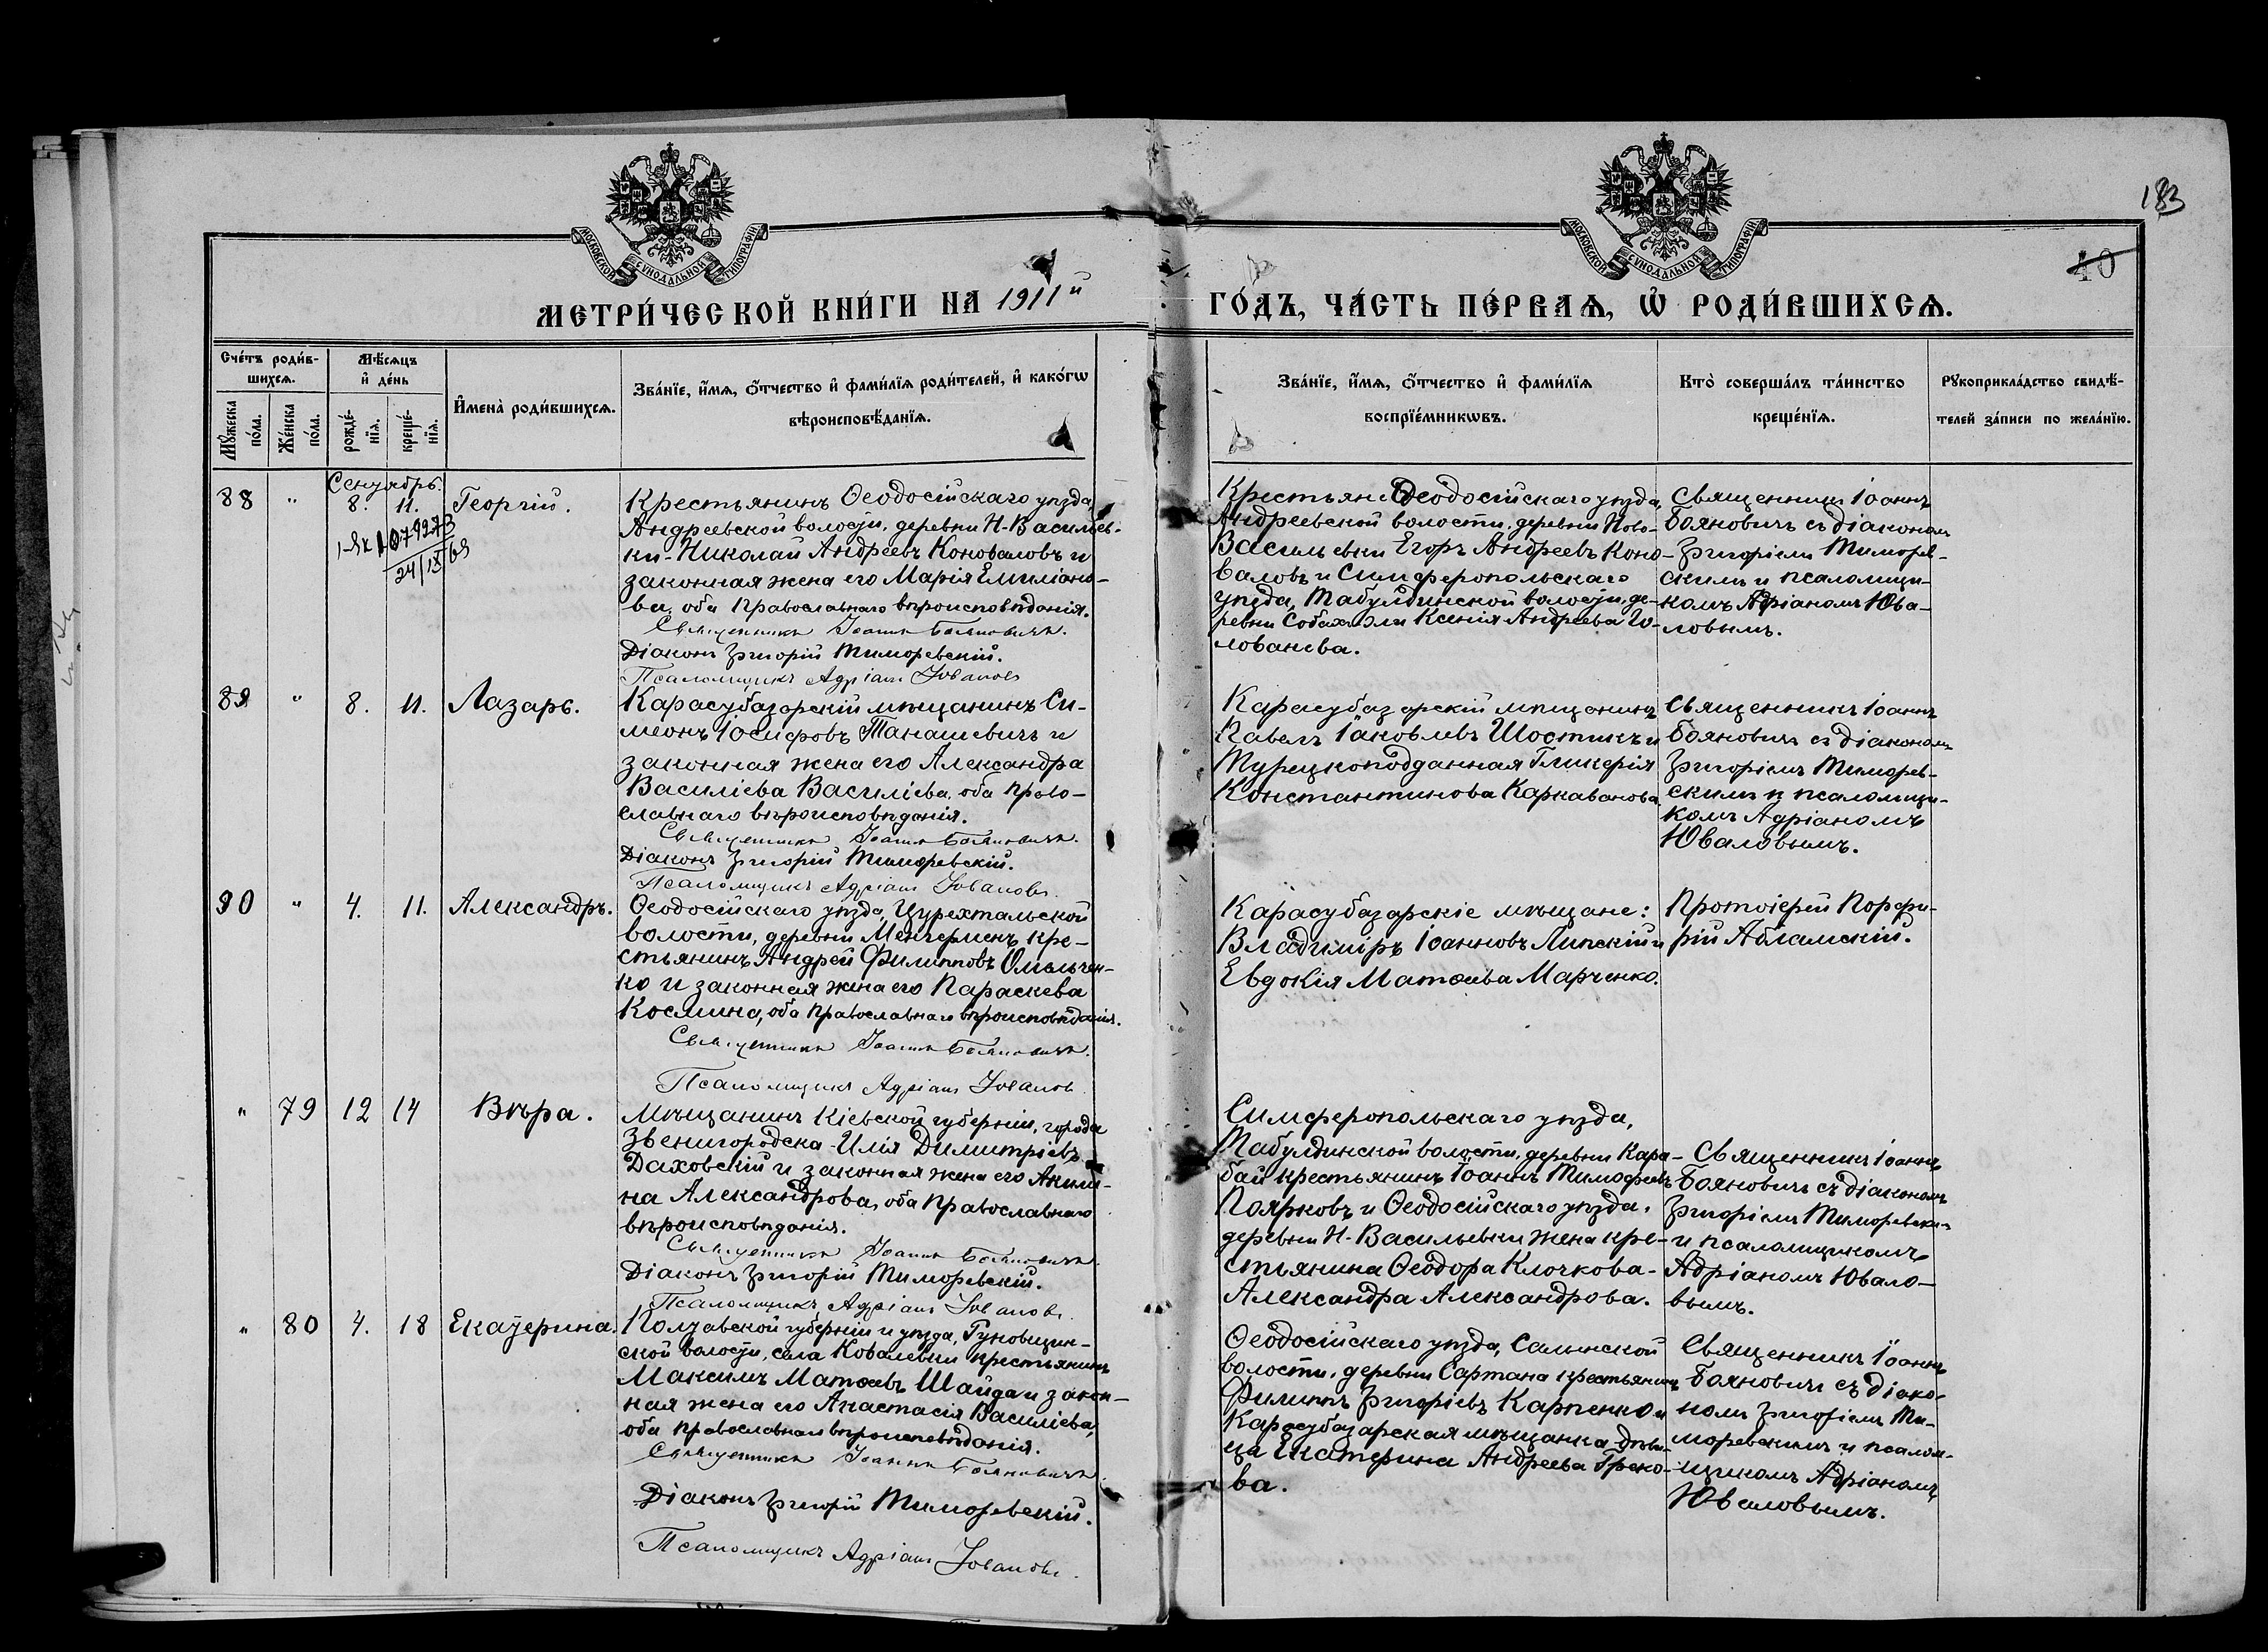 183
40
МОСКОВСКОЙ СѴНОДАЛЬНОЙ ТИПОГРАФІИ
МОСКОВСКОЙ СѴНОДАЛЬНОЙ ТИПОГРАФІИ
МЕТРИ́ЧЕСКОЙ КНИ́ГИ НА 1911й
ГО́ДЪ, ЧА́СТЬ ПЕ́РВАѦ, Ѡ҆ РОДИ́ВШИХСѦ.
Сче́тъ роди́в-
шихсѧ.
Мꙋ́жеска по́ла.
Же́нска по́ла.
Мѣ́сѧцъ
и҆ де́нь
рожде́-
нїѧ.
креще́-
нїѧ.
И҆мена̀ роди́вшихсѧ.
Зва́нїе, и҆́мѧ, ѻ҆́тчество и҆ фами́лїѧ роди́телей, и҆ како́гѡ
вѣроисповѣ́данїѧ.
Зва́нїе, и҆́мѧ, ѻ҆́тчество и҆ фами́лїѧ
воспрїе́мникѡвъ.
Кто̀ соверша́лъ та́инство
креще́нїѧ.
Рꙋкоприкла́дство свидѣ́-
телей за́писи по жела́нїю.
Сентябрь.
88 " 8. 11. Георгій.
1079273
24/IX 69
Крестьянинъ Ѳеодосійскаго уѣзда,
Андреевской волости, деревни Н-Васильев-
ки- Николай Андреевъ Коноваловъ и
законная жена его Марія Емиліано-
ва, оба православнаго вѣроисповѣданія.
Священникъ Іоаннъ Бояновичъ.
Діаконъ Григорій Тиморевскій.
Псаломщикъ Адріанъ Юваловъ
Крестьяне Ѳеодосійскаго уѣзда,
Андреевской волости, деревни Ново-
Васильевки Егоръ Андреевъ Коно-
валовъ и Симферопольскаго
уѣзда, Табулдинской волости, де-
ревни Ксенія Андреева Го-
лованева.
Священникъ Іоаннъ
Бояновичъ съ діакономъ
Григоріемъ Тиморев-
скимъ и псаломщи-
комъ Адріаномъ Юва-
ловымъ.
89 " 8. 11. Лазарь.
Карасубазарскій мѣщанинъ Си-
меонъ Іосифовъ Танашевичъ и
законная жена его Александра
Василіева Василіева, оба право-
славнаго вѣроисповѣданія.
Священникъ Іоаннъ Бояновичъ.
Діаконъ Григорій Тиморевскій.
Псаломщикъ Адріанъ Юваловъ.
Карасубазарскій мѣщанинъ
Павелъ Іаковлевъ Шостикъ и
Турецкоподданная Гликерія
Константинова Каркаванова
Священникъ Іоаннъ
Бояновичъ съ діакономъ
Григоріемъ Тиморев-
скимъ и псаломщи-
комъ Адріаномъ
Юваловымъ.
90 " 4. 11. Александръ.
Ѳеодосійскаго уѣзда, Цурихтальской
волости, деревни Менгерменъ, кре-
стьянинъ Андрей Филипповъ Омельчен-
ко и законная жена его Параскева
Космина, оба православнаго вѣроисповѣданія.
Священникъ Іоаннъ Бояновичъ.
Псаломщикъ Адріанъ Юваловъ
Карасубазарскіе мѣщане:
Владиміръ Іоанновъ Липскій и
Евдокія Матѳеева Марченко.
Протоіерей Порфи-
рій Абламскій.
" 79 12 14 Вѣра.
Мѣщанинъ Кіевской губерніи, города
Звенигородска- Илія Димитріевъ
Даховскій и законная жена его Акили-
на Александрова, оба православнаго
вѣроисповѣданія.
Священникъ Іоаннъ Бояновичъ.
Діаконъ Григорій Тиморевскій.
Псаломщикъ Адріанъ Юваловъ.
Симферопольскаго уѣзда,
Табулдинской волости, деревни Кара-
бай крестьянинъ Іоаннъ Тимофеевъ
Поярковъ и Ѳеодосійскаго уѣзда,
деревни Н-Васильевки жена кре-
стьянина Ѳеодора Клочкова-
Александра Александрова.
Священникъ Іоаннъ
Бояновичъ съ діакономъ
Григоріемъ Тиморевским
и псаломщикомъ
Адріаномъ Ювало-
вымъ.
" 80 4. 18 Екатерина.
Полтавской губерніи и уѣзда,
ской волости, села Ковалевки крестьянинъ
Максимъ Матѳеевъ Шайда и закон-
ная жена его Анастасія Василіева,
оба православнаго вѣроисповѣданія.
Священникъ Іоаннъ Бояновичъ.
Діаконъ Григорій Тиморевскій.
Псаломщикъ Адріанъ Юваловъ.
Ѳеодосійскаго уѣзда, Салынской
волости, деревни Сартана крестьянинъ
Филиппъ Григоріевъ Карпенко и
Карасубазарская мѣщанка дѣви-
ца Екатерина Андреева Греко-
ва.
Священникъ Іоаннъ
Бояновичъ съ діако-
номъ Григоріемъ Ти-
моревскимъ и псалом-
щикомъ Адріаномъ
Юваловымъ.